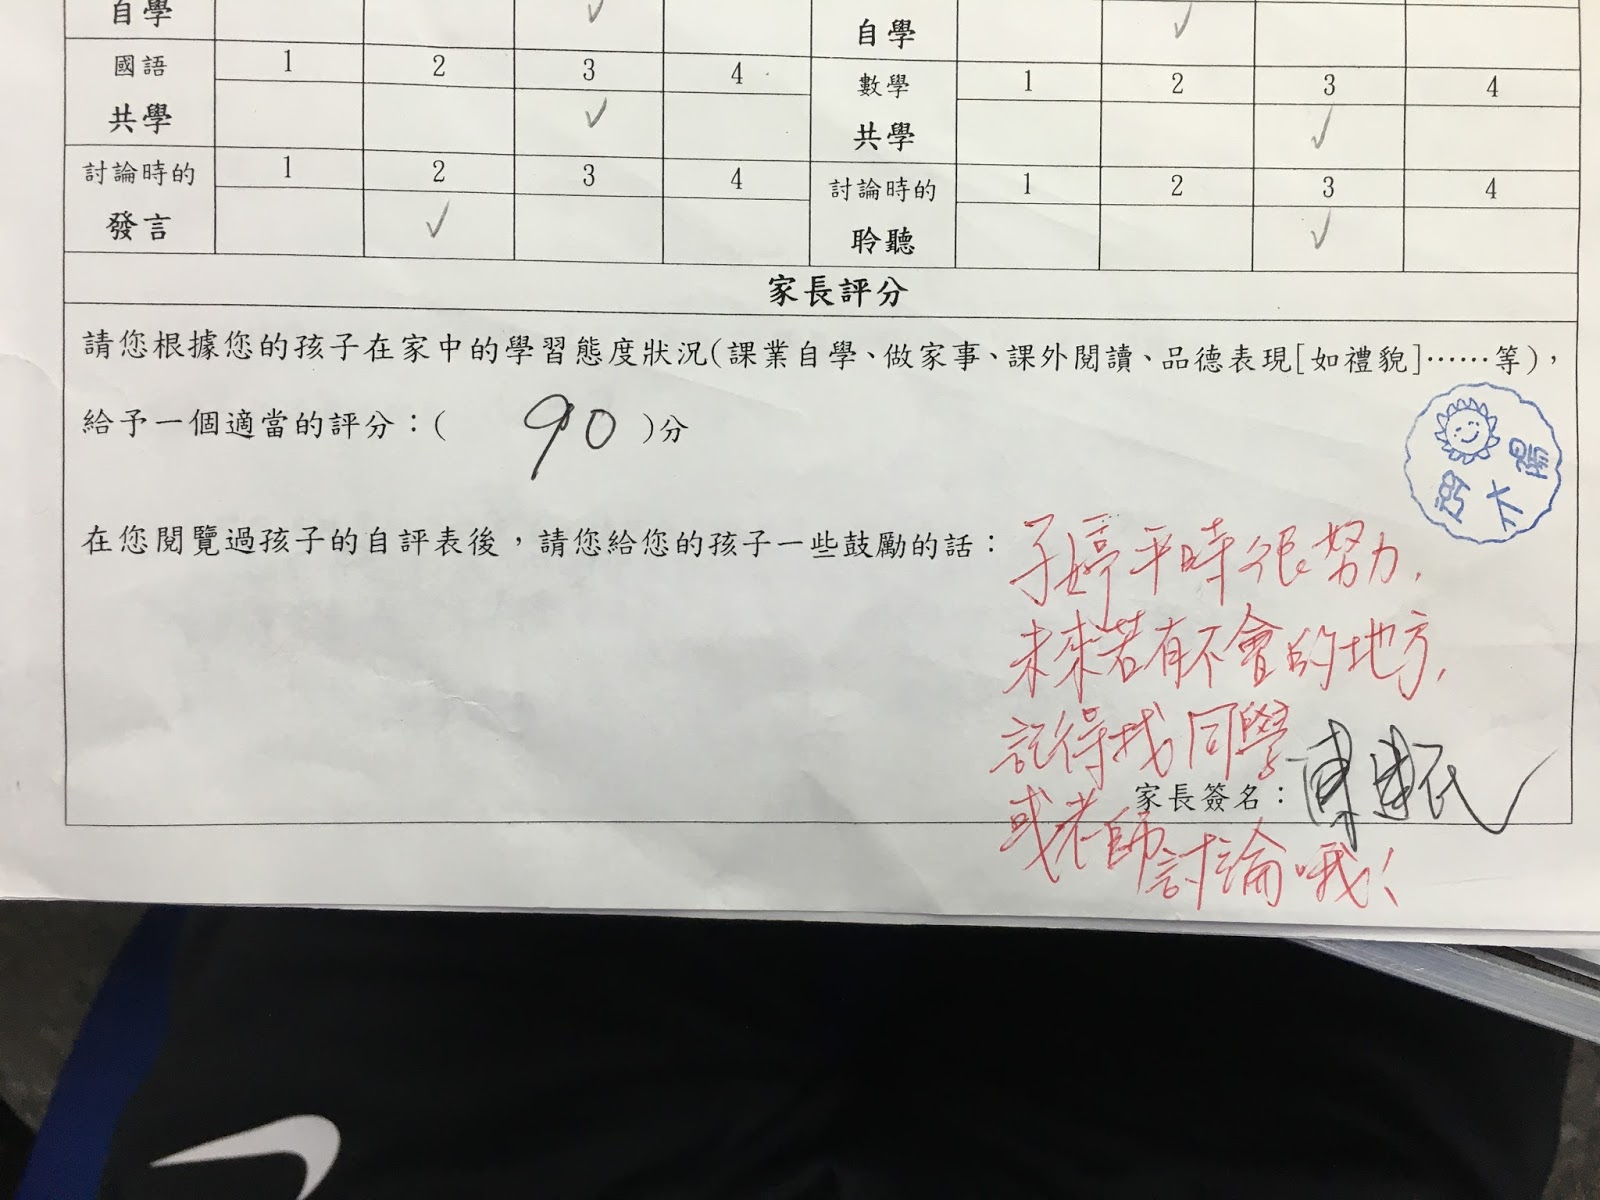 自學 自學
國語 1 2 3 4 數學 1 2 3 4
共學 ✓ 共學 ✓
討論時的 1 2 3 4 討論時的 1 2 3 4
發言 ✓ 聆聽 ✓
家長評分
請您根據您的孩子在家中的學習態度狀況(課業自學、做家事、課外閱讀、品德表現[如禮貌]……等)，
給予一個適當的評分：( 90 )分
太陽
在您閱覽過孩子的自評表後，請您給您的孩子一些鼓勵的話：
子婷平時很努力，
未來若有不會的地方，
記得找同學
或老師討論哦！
家長簽名：